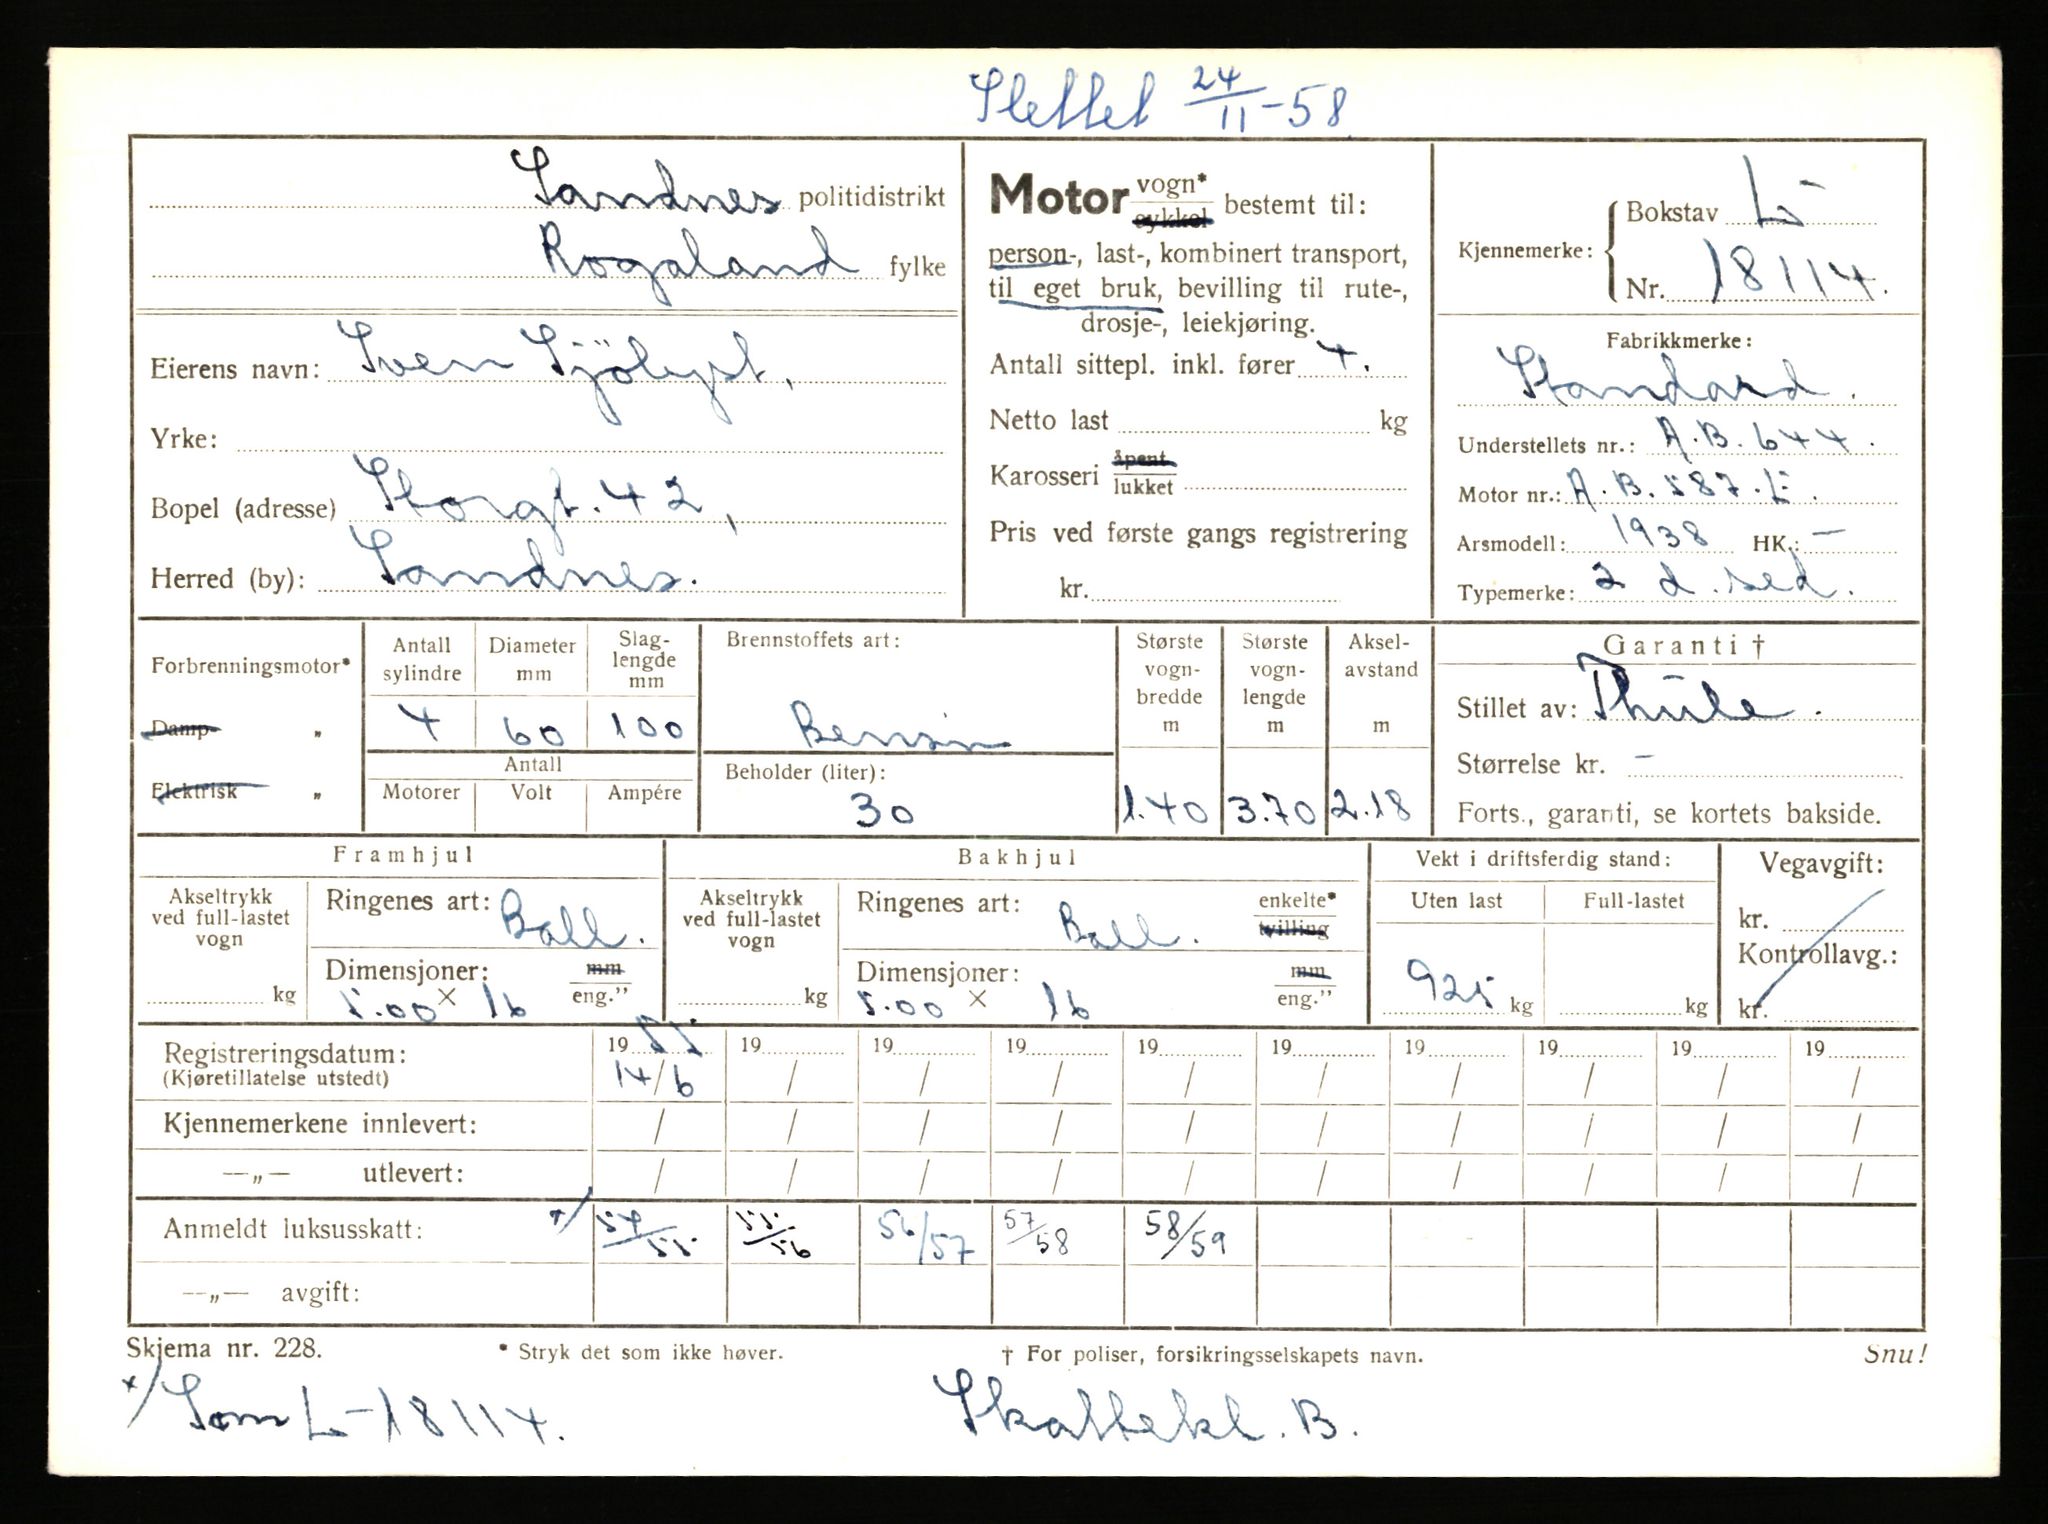 Slettet 24/11-58
Sandnes politidistrikt
Rogaland fylke
Eierens navn: Sven Sjölyst,
Yrke:
Bopel (adresse) Storgt. 42,
Herred (by): Sandnes.
Motor vogn* sykkel bestemt til:
person-, last-, kombinert transport,
til eget bruk, bevilling til rute-,
drosje-, leiekjøring.
Antall sittepl. inkl. fører 4.
Netto last kg
Karosseri åpent lukket
Pris ved første gangs registrering
kr.
Kjennemerke: { Bokstav L
Nr. 18114.
Fabrikkmerke:
Standard.
Understellets nr.: A.B. 644.
Motor nr.: A.B. 587.E.
Arsmodell: 1938 HK.: —
Typemerke: 2 d. sed.
Forbrenningsmotor*
Damp- „
Elektrisk „
Antall sylindre
Diameter mm
Slag-lengde mm
4 60 100
Antall
Motorer Volt Ampére
Brennstoffets art:
Bensin
Beholder (liter):
30
Største vogn-bredde m
1.40
Største vogn-lengde m
3.70
Aksel-avstand m
2.18
Garanti †
Stillet av: Thule.
Størrelse kr. —
Forts., garanti, se kortets bakside.
Framhjul
Akseltrykk ved full-lastet vogn
kg
Ringenes art: Ball.
Dimensjoner: mm eng.”
5.00 × 16
Bakhjul
Akseltrykk ved full-lastet vogn
kg
Ringenes art: Ball. enkelte* tvilling
Dimensjoner: mm eng.”
5.00 × 16
Vekt i driftsferdig stand:
Uten last Full-lastet
925 kg kg
Vegavgift:
kr.
Kontrollavg.:
kr.
Registreringsdatum: 19 55 19 19 19 19 19 19 19 19 19
(Kjøretillatelse utstedt) 14/6 / / / / / / / / /
Kjennemerkene innlevert: / / / / / / / / / /
—„— utlevert: / / / / / / / / / /
Anmeldt luksusskatt: x/ 54/55 55/56 56/57 57/58 58/59
—„— avgift:
Skjema nr. 228. * Stryk det som ikke høver. † For poliser, forsikringsselskapets navn. Snu!
x/ Som L-18114. Skattekl. B.